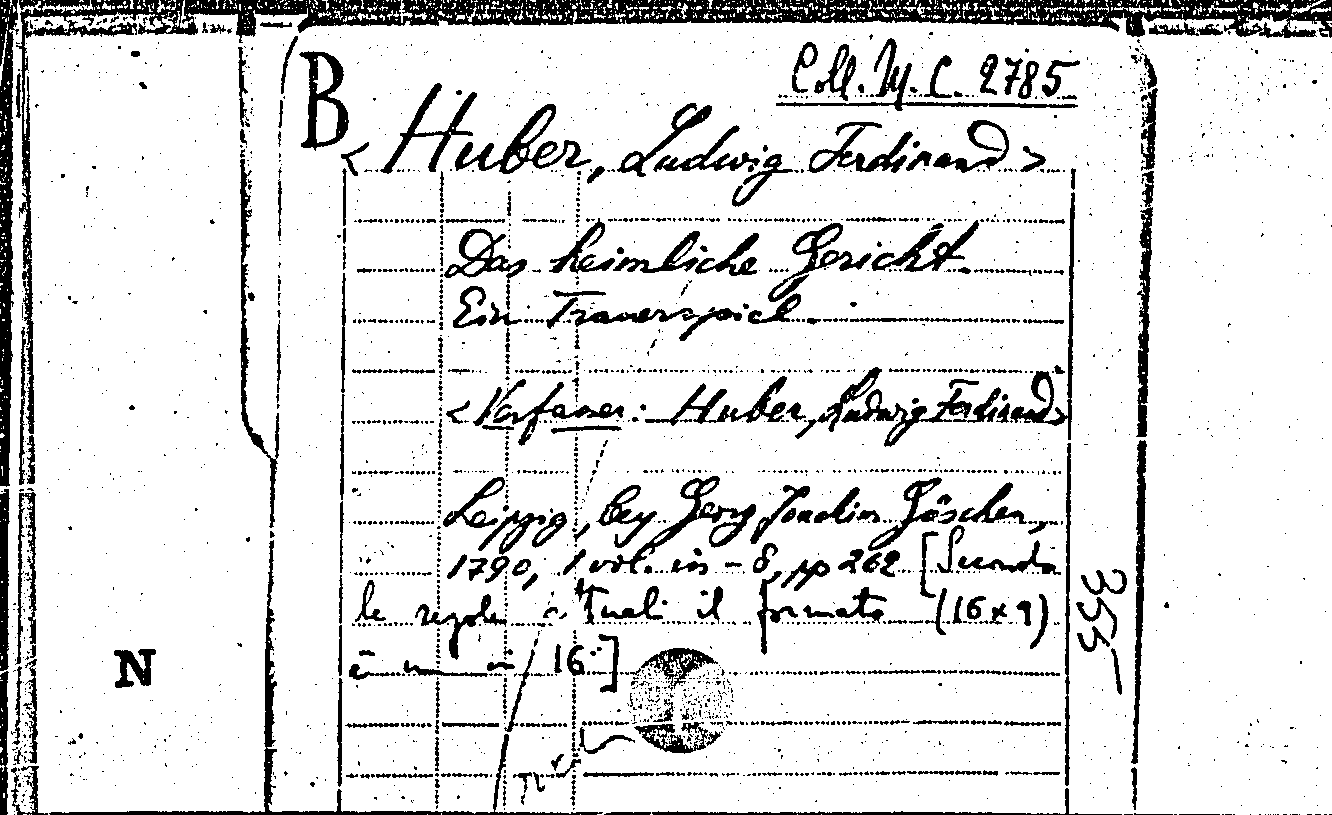 B
Coll. M. C. 2785
<Huber, Ludwig Ferdinand>
Das heimliche Gericht.
Ein Trauerspiel.
<Verfasser: Huber, Ludwig Ferdinand>
Leipzig, bey Georg Joachim Göschen,
1790, 1 vol. in-8, pp 262 [Secondo
le regole attuali il formato (16x9)
è un in 16°]
355
N